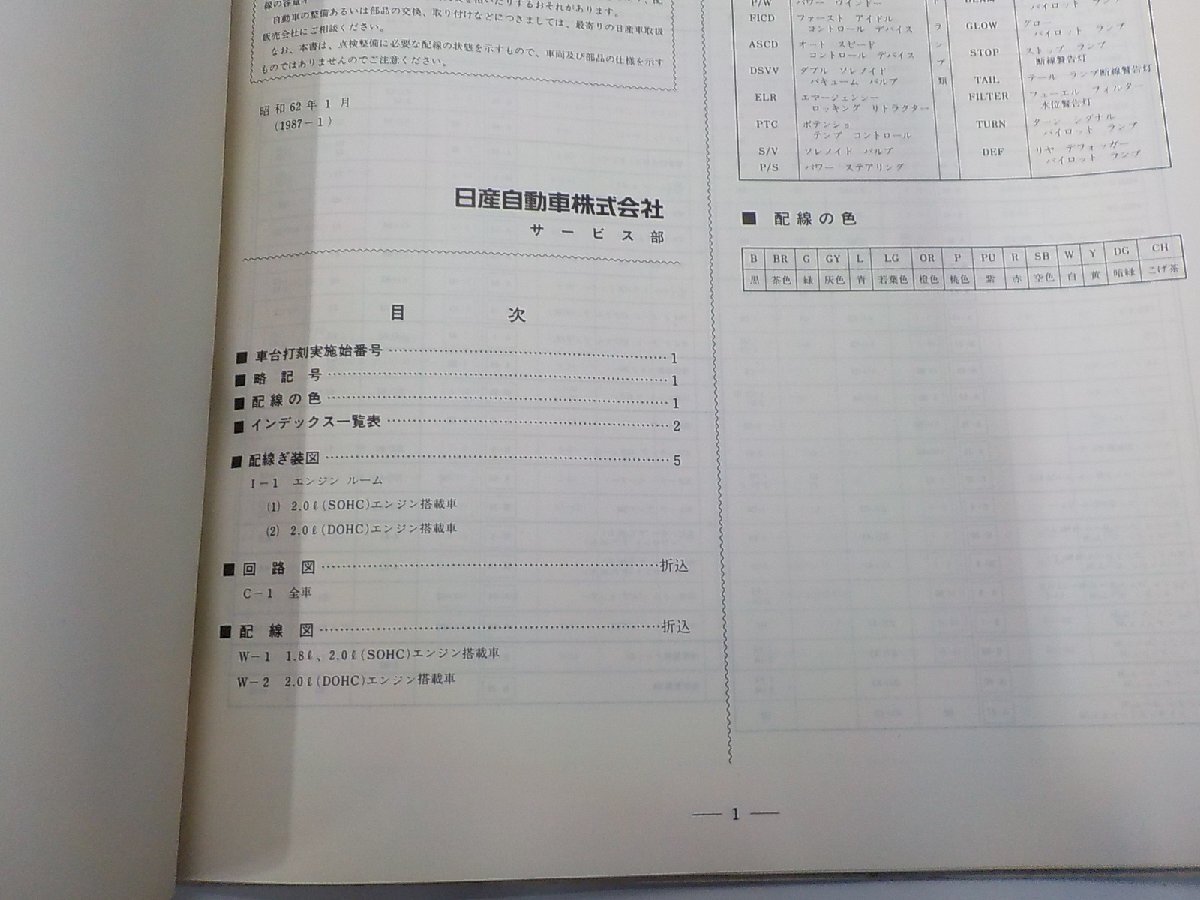 自動車の整備あるいは部品の交換、取り付けなどにつきましては、最寄りの日産車取扱
販売会社にご相談ください。
なお、本書は、点検整備に必要な配線の状態を示すもので、車両及び部品の仕様を示す
ものではありませんのでご注意ください。
昭和62年1月
(1987-1)
日産自動車株式会社
サービス部
目 次
■ 車台打刻実施始番号 1
■ 略記号 1
■ 配線の色 1
■ インデックス一覧表 2
■ 配線ぎ装図 5
I-1 エンジン ルーム
(1) 2.0ℓ(SOHC)エンジン搭載車
(2) 2.0ℓ(DOHC)エンジン搭載車
■ 回路図 折込
C-1 全車
■ 配線図 折込
W-1 1.8ℓ、2.0ℓ(SOHC)エンジン搭載車
W-2 2.0ℓ(DOHC)エンジン搭載車
P/W パワー ウインドー
FICD ファースト アイドル
コントロール デバイス
ASCD オート スピード
コントロール デバイス
DSVV ダブル ソレノイド
バキューム バルブ
ELR エマージェンシー
ロッキング リトラクター
PTC ポテンショ
テンプ コントロール
S/V ソレノイド バルブ
P/S パワー ステアリング
ランプ類
パイロット ランプ
GLOW グロー
パイロット ランプ
STOP ストップ ランプ
断線警告灯
TAIL テール ランプ断線警告灯
FILTER フューエル フィルター
水位警告灯
TURN ターン シグナル
パイロット ランプ
DEF リヤ デフォッガー
パイロット ランプ
■ 配線の色
B BR G GY L LG OR P PU R SB W Y DG CH
黒 茶色 緑 灰色 青 若葉色 橙色 桃色 紫 赤 空色 白 黄 暗緑 こげ茶
— 1 —